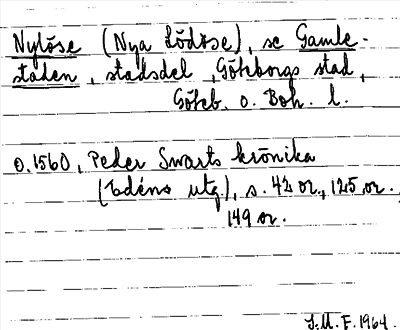 Nylöse (Nya Lödöse), se Gamle-
staden, stadsdel, Göteborgs stad,
Göteb. o. Boh. l.
o. 1560, Peder Swarts krönika
(Edéns utg), s. 42 or., 125 or.,
149 or.
S.M.F. 1964.